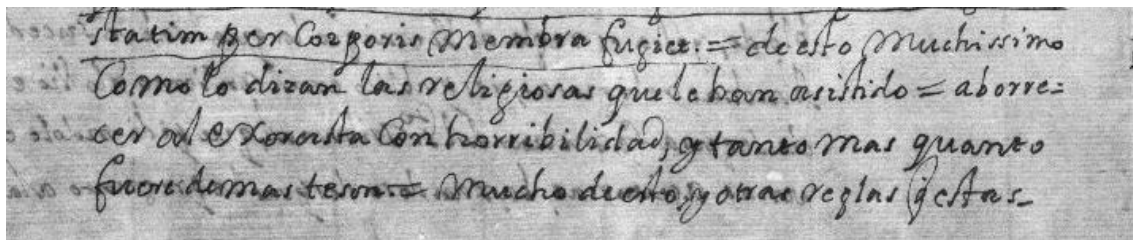 statim per Corporis Membra fugiet. = de esto Muchissimo
Como lo diran las religiosas que le han asistido = aborre=
cer al exorcista Con horribilidad, y tanto mas quanto
fuere de mas teson = Mucho de esto, y otras reglas q̃ estas_